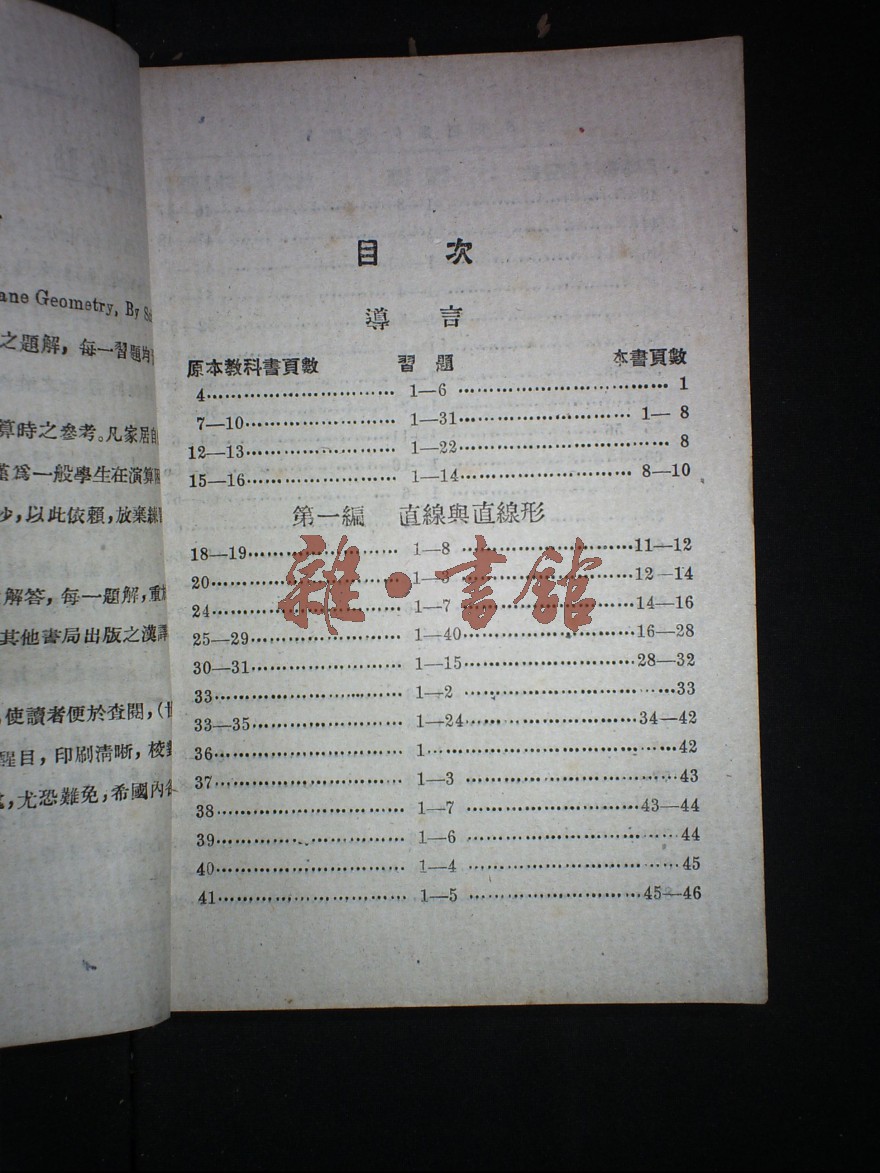 ane Geometry, By
之題解，每一習題均
算時之參考。凡家居自
爲一般學生在演算
少，以此依賴，放棄練
解答，每一題解，重
其他書局出版之漢譯
使讀者便於查閱，
醒目，印刷清晰，校對
尤恐難免，希國內
目 次
導 言
原本教科書頁數 習 題 本書頁數
4 1—6 1
7—10 1—31 1—8
12—13 1—22 8
15—16 1—14 8—10
第一編 直線與直線形
18—19 1—8 11—12
20 1— 12—14
24 1—7 14—16
25—29 1—40 16—28
30—31 1—15 28—32
33 1—2 33
33—35 1—24 34—42
36 1 42
37 1—3 43
38 1—7 43—44
39 1—6 44
40 1—4 45
41 1—5 45—46
雜·書館